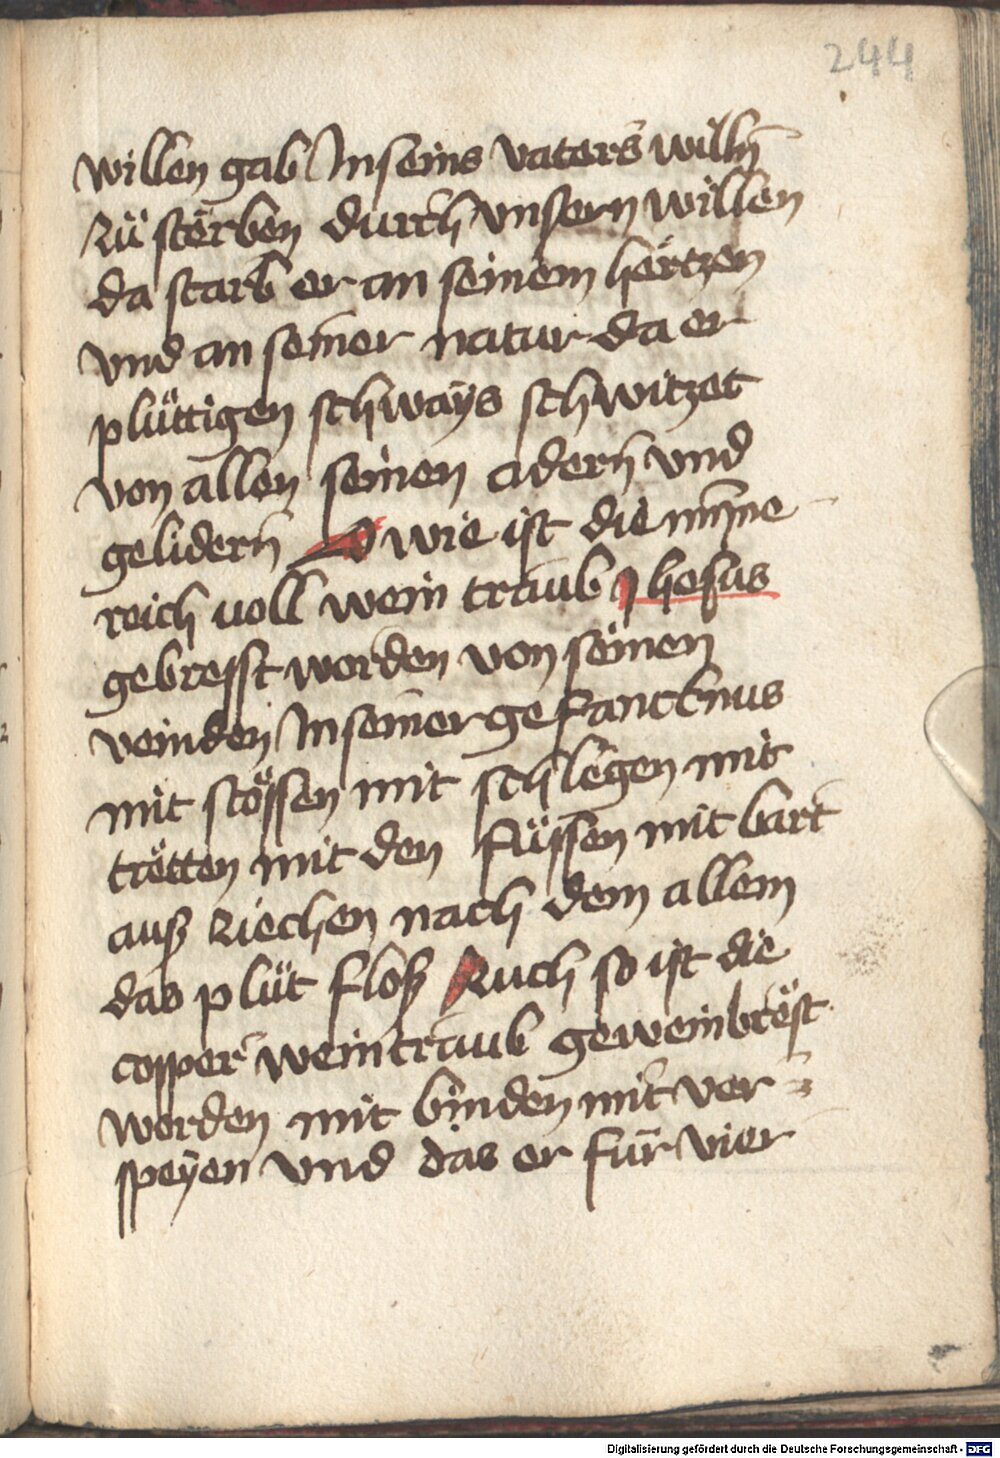 244
willen gab In seins vaters willn̄
zü sterben durch vnsern willen
da starb er an seinem hertzen
vnd an seiner natur da er
plüttigen schways schwitzet
von allen seinen adern vnd
gelidern O wie ist die mȳne
reich voll wein traub Jhesus
gebresst worden von seinen
veinden In seiner gefancknus
mit stössen mit schlegen mit
trëtten mit den füssen mit bart
auß ziechen nach dem allem
das plüt floß Auch so ist die
copper weintraub geweinbrëst
worden mit binden mit ver=
speyen vnd das er für vier
Digitalisierung gefördert durch die Deutsche Forschungsgemeinschaft - DFG